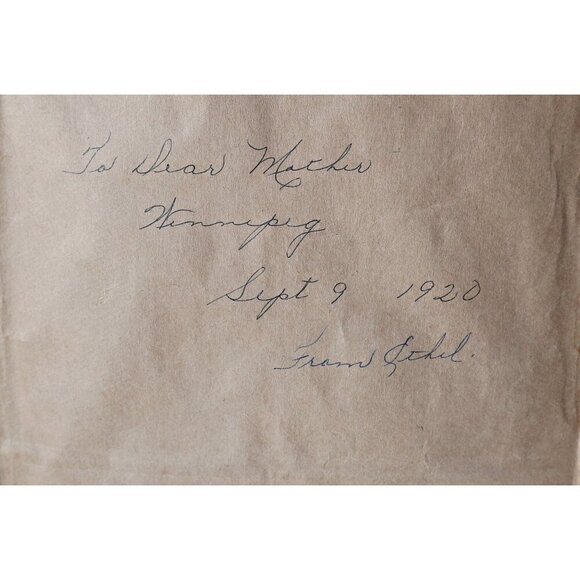 To Dear Mother
Winnipeg
Sept 9 1920
From Ethel.